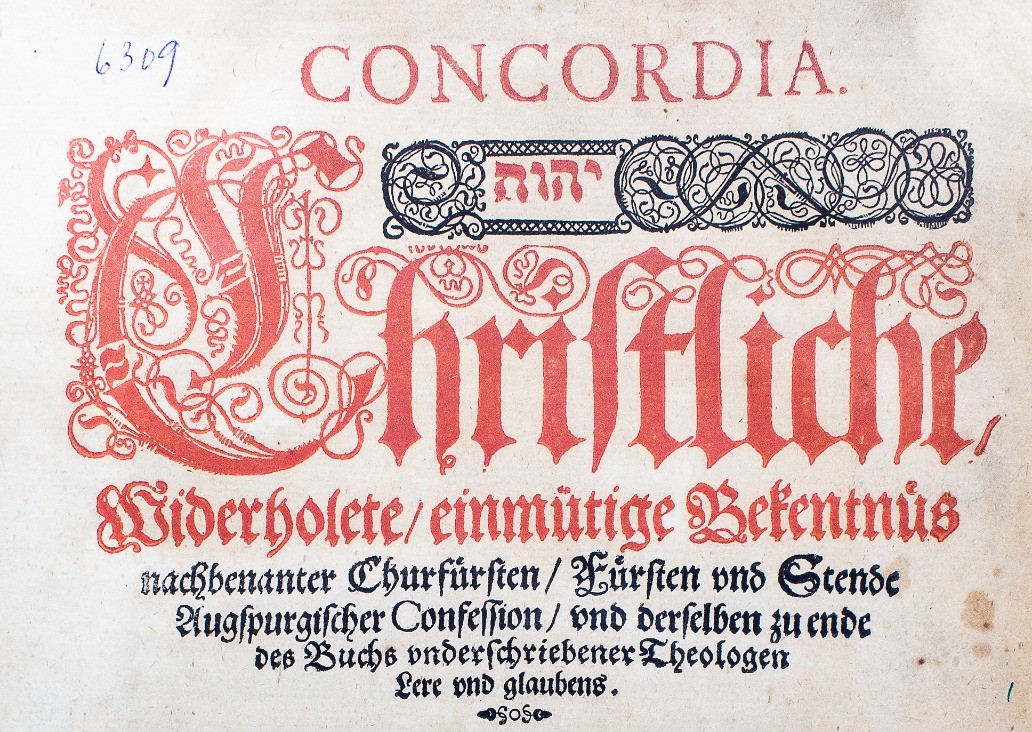 6309
CONCORDIA.
יהוה
Christliche/
Widerholete/ einmütige Bekentnüs
nachbenanter Churfürsten/ Fürsten vnd Stende
Augspurgischer Confession/ vnd derselben zu ende
des Buchs vnderschriebener Theologen
Lere vnd glaubens.